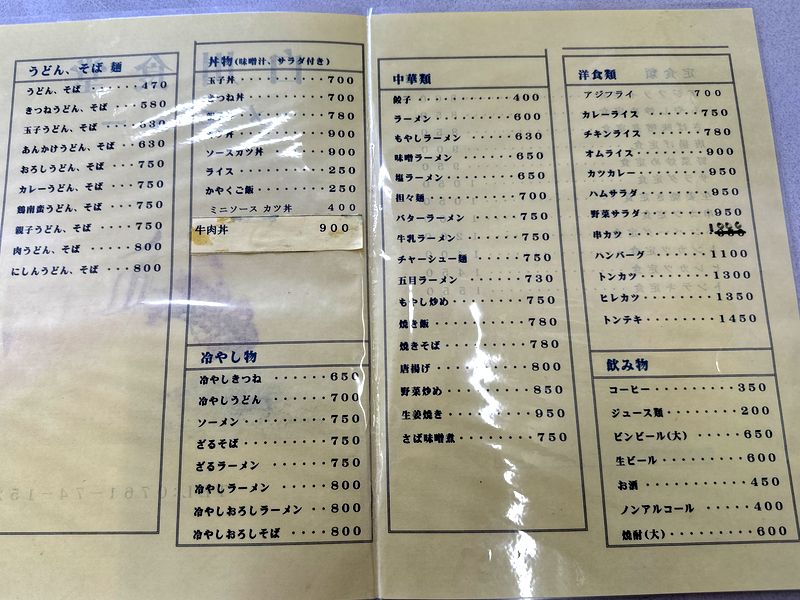 うどん、そば 麺
うどん、そば ・・・・・・・470
きつねうどん、そば ・・・・580
玉子うどん、そば ・・・・630
あんかけうどん、そば ・・・630
おろしうどん、そば ・・・・750
カレーうどん、そば ・・・・750
鶏南蛮うどん、そば ・・・・750
親子うどん、そば ・・・・・750
肉うどん、そば ・・・・・・800
にしんうどん、そば ・・・・800
丼物(味噌汁、サラダ付き)
玉子丼 ・・・・・・・・・700
きつね丼 ・・・・・・・・700
780
900
ソースカツ丼 ・・・・・・900
ライス ・・・・・・・・・250
かやくご飯 ・・・・・・・250
ミニソース カツ丼 400
牛肉丼 900
冷やし物
冷やしきつね ・・・・・・650
冷やしうどん ・・・・・・700
ソーメン ・・・・・・・・750
ざるそば ・・・・・・・・750
ざるラーメン ・・・・・・750
冷やしラーメン ・・・・・800
冷やしおろしラーメン ・・800
冷やしおろしそば ・・・・800
中華類
餃子 ・・・・・・・・・・400
ラーメン ・・・・・・・・600
もやしラーメン ・・・・・630
味噌ラーメン ・・・・・・650
塩ラーメン ・・・・・・・650
担々麺 ・・・・・・・・・700
バターラーメン ・・・・・750
牛乳ラーメン ・・・・・・750
チャーシュー麺 ・・・・・750
五目ラーメン ・・・・・・730
もやし炒め ・・・・・・・750
焼き飯 ・・・・・・・・・780
焼きそば ・・・・・・・・780
唐揚げ ・・・・・・・・・800
野菜炒め ・・・・・・・・850
生姜焼き ・・・・・・・・950
さば味噌煮 ・・・・・・・750
洋食類
アジフライ 700
カレーライス ・・・・・・750
チキンライス ・・・・・・780
オムライス ・・・・・・・900
カツカレー ・・・・・・・950
ハムサラダ ・・・・・・・950
野菜サラダ ・・・・・・・950
串カツ ・・・・・・・・・1000
ハンバーグ ・・・・・・1100
トンカツ ・・・・・・・1300
ヒレカツ ・・・・・・・1350
トンテキ ・・・・・・・1450
飲み物
コーヒー ・・・・・・・・350
ジュース類 ・・・・・・・200
ビンビール(大) ・・・・・650
生ビール ・・・・・・・・600
お酒 ・・・・・・・・・・450
ノンアルコール ・・・・・400
焼酎(大) ・・・・・・・・600